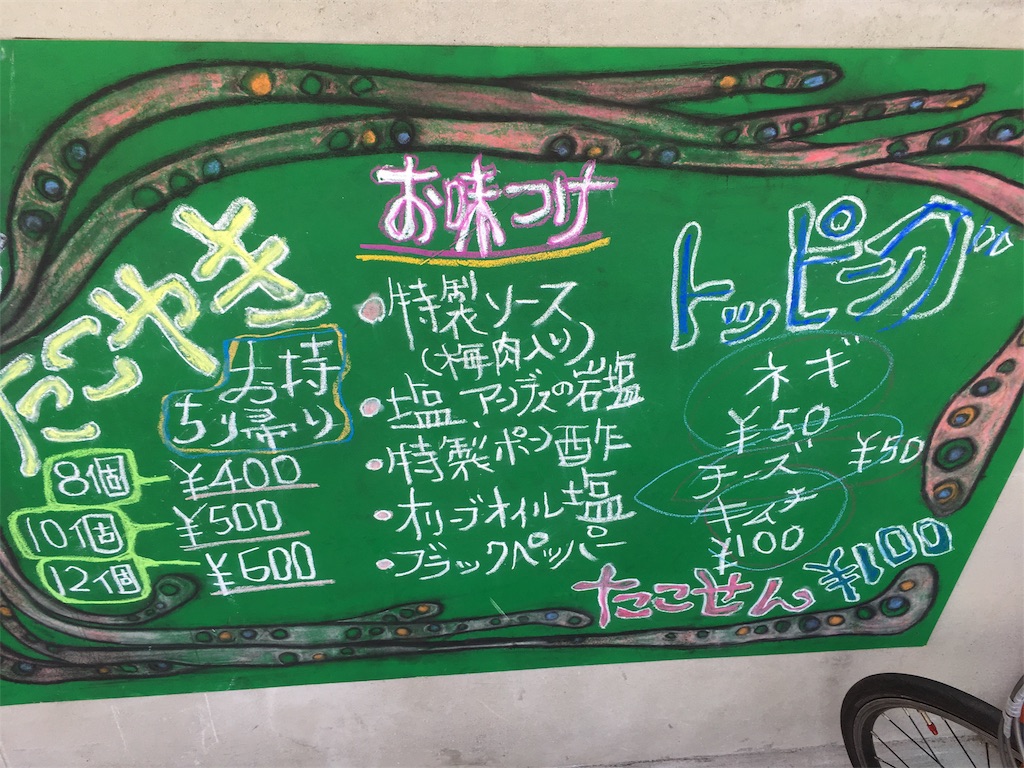 たこやき
お持
ち帰り
8個 ¥400
10個 ¥500
12個 ¥600
お味つけ
・特製ソース
(梅肉入り)
・塩、アンデスの岩塩
・特製ポン酢
・オリーブオイル塩
・ブラックペッパー
トッピング
ネギ
¥50
チーズ ¥50
キムチ
¥100
たこせん ¥100